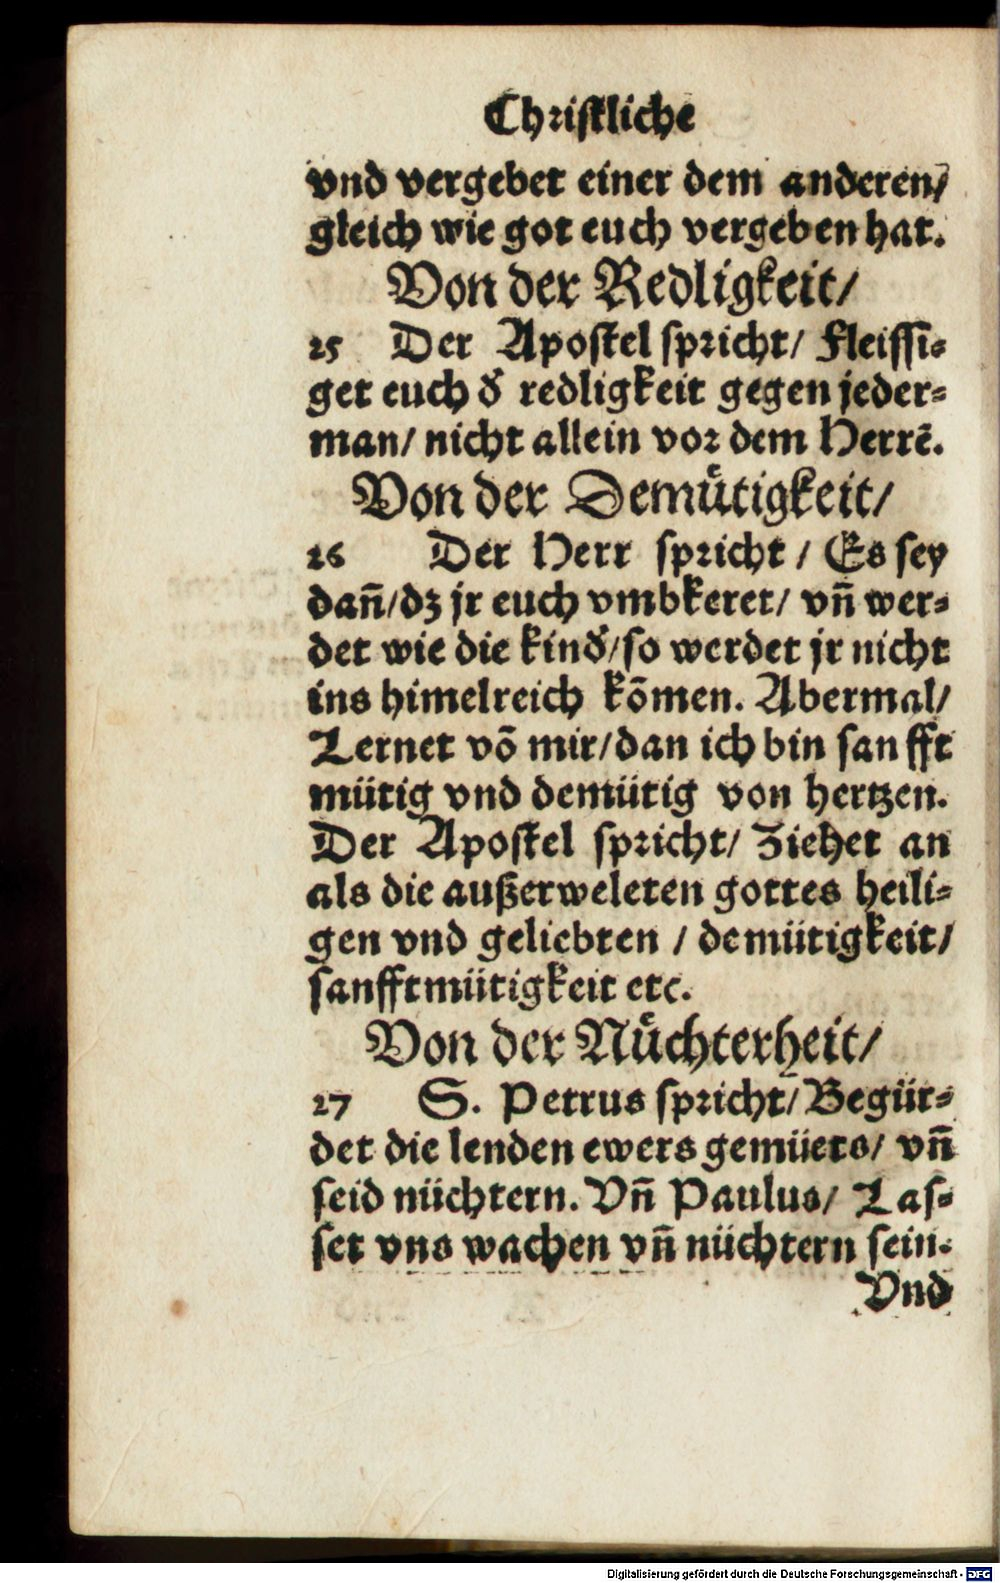 Christliche
vnd vergebet einer dem anderen/
gleich wie got euch vergeben hat.
Von der Redligkeit/
25 Der Apostel spricht/ Fleissi-
get euch d̕ redligkeit gegen jeder-
man/ nicht allein vor dem Herrē.
Von der Demuͤtigkeit/
26 Der Herr spricht / Es sey
dañ/dz jr euch vmbkeret/ vñ wer-
det wie die kind̕/so werdet jr nicht
ins himelreich kõmen. Abermal/
Lernet võ mir/dan ich bin sanfft
mütig vnd demütig von hertzen.
Der Apostel spricht/ Ziehet an
als die außerweleten gottes heili-
gen vnd geliebten / demütigkeit/
sanfftmütigkeit etc.
Von der Nuͤchterheit/
27 S. Petrus spricht/ Begür-
det die lenden ewers gemüets/ vñ
seid nüchtern. Vñ Paulus/ Las-
set vns wachen vñ nüchtern sein.
Vnd
Digitalisierung gefördert durch die Deutsche Forschungsgemeinschaft - DFG